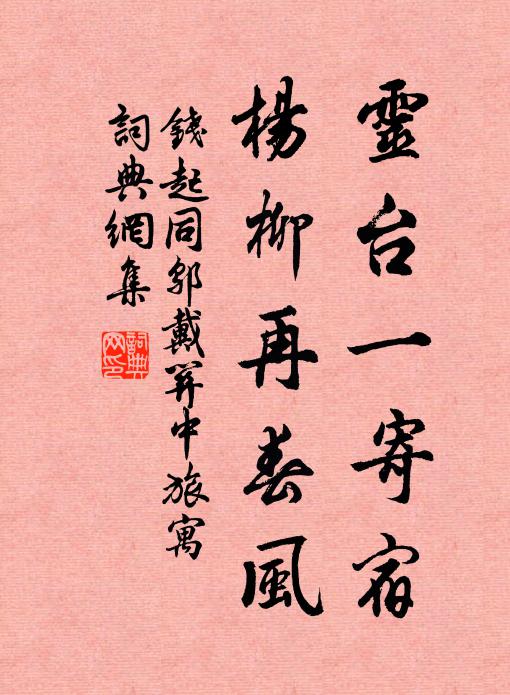 靈台一寄宿
楊柳再春風
錢起同鄔戴关中旅寓
詞典網集
詞典网印